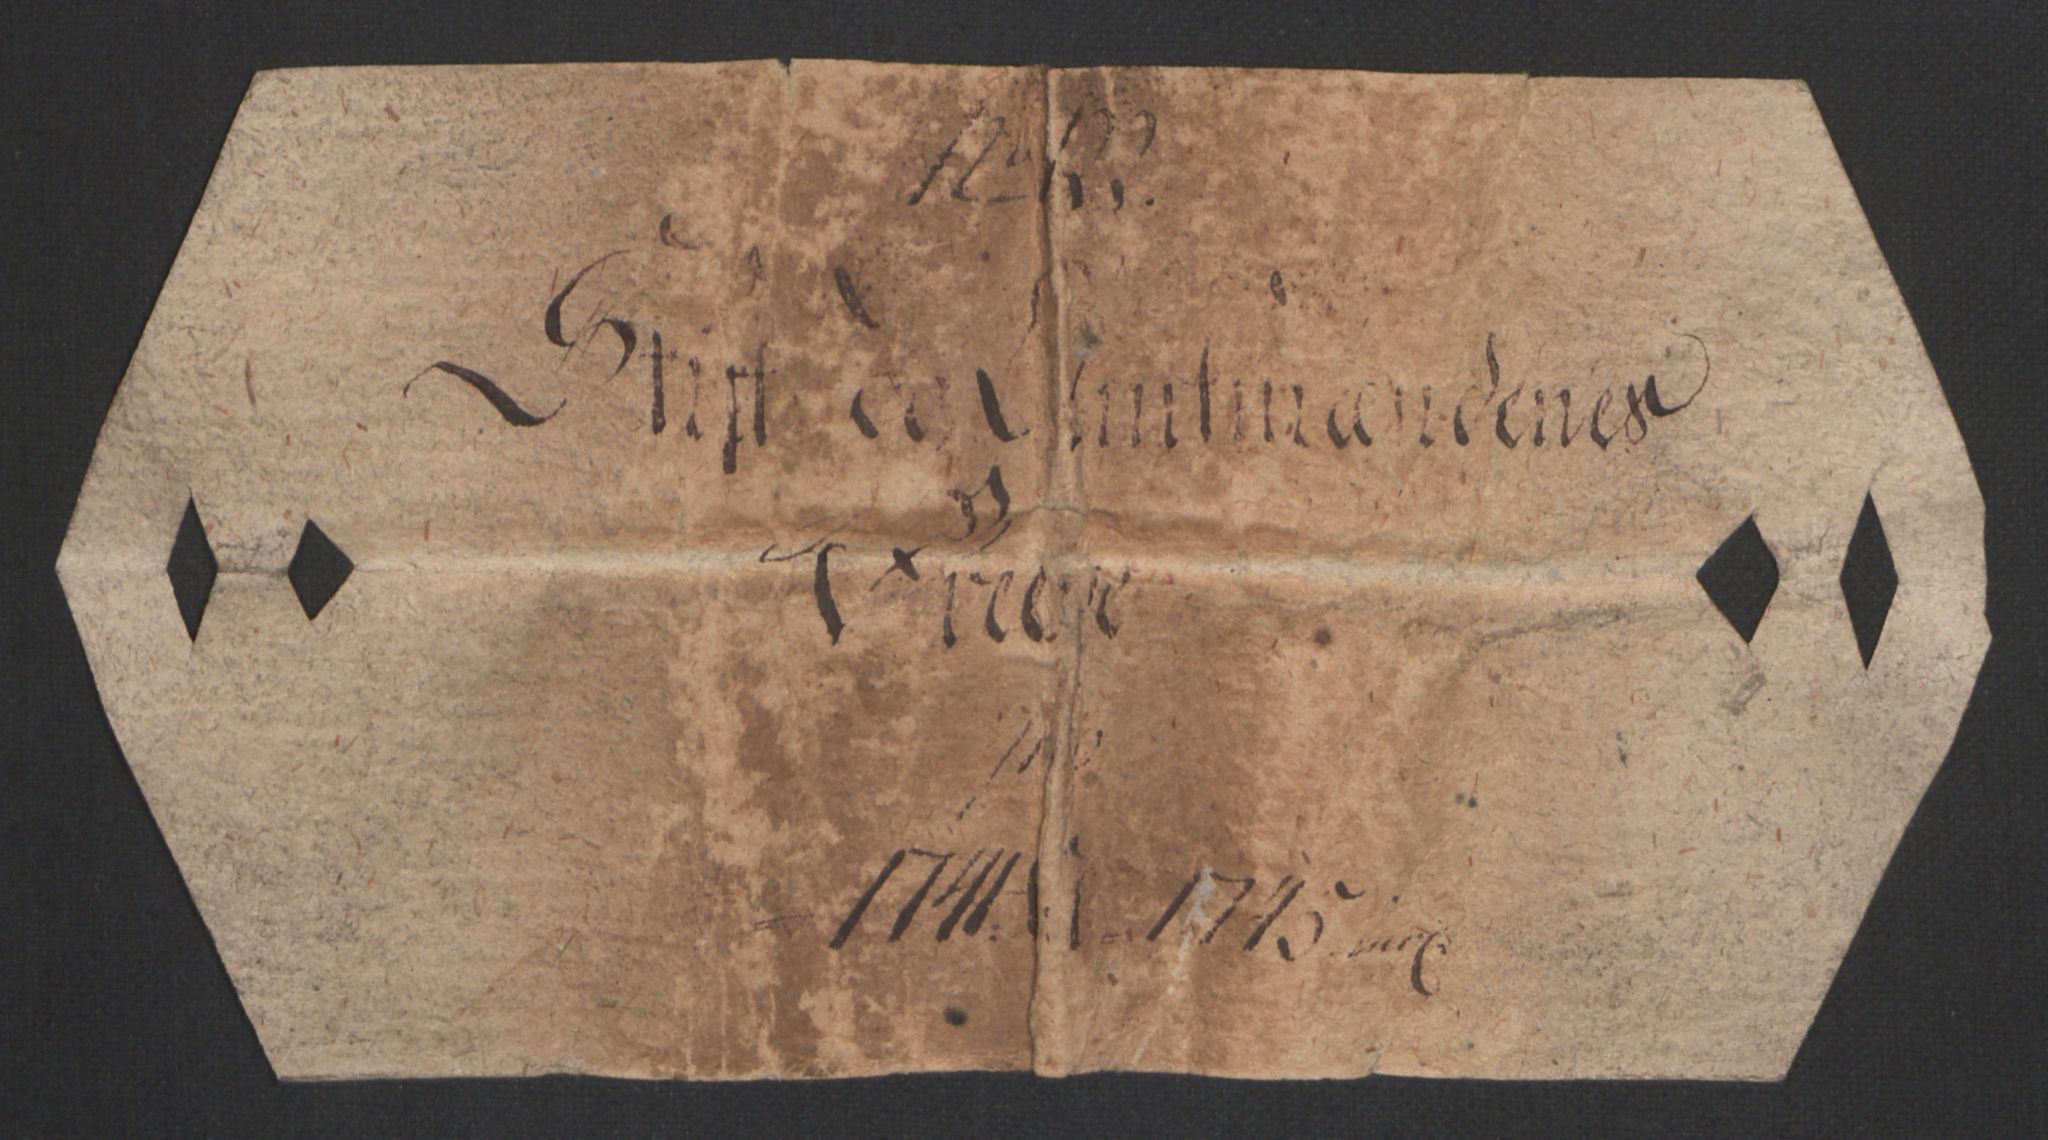 No
Stift og Amtmændenes
Breve
1741. 1745 incl.